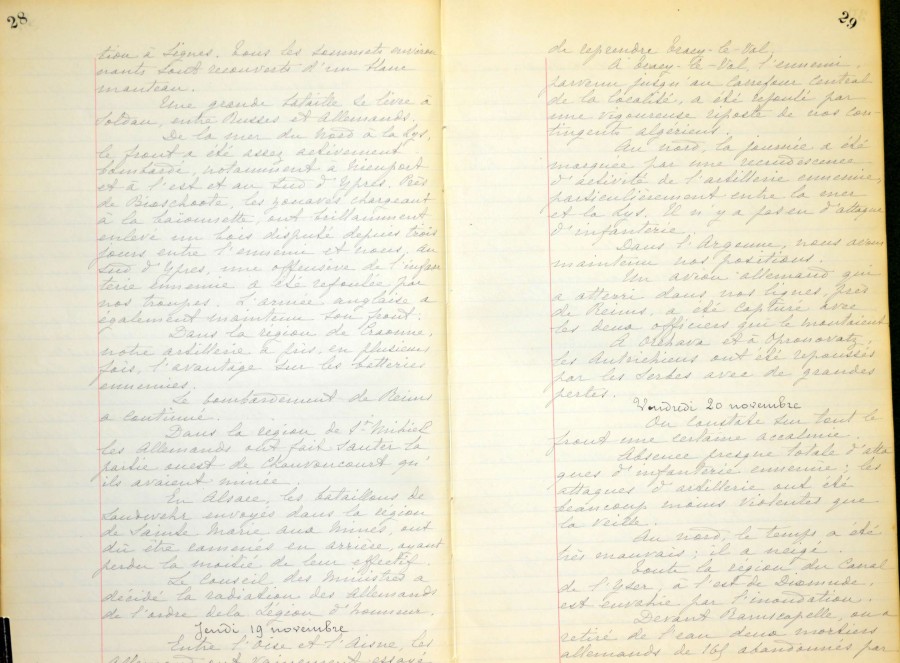 28
tion à Signes. Tous les sommets environ
nants sont recouverts d'un blanc
manteau.
Une grande bataille se livre à
Soldau, entre Russes et Allemands.
De la mer du Nord à la Lys,
le front a été assez activement
bombardé, notamment à Nieuport
et à l'est et au sud d'Ypres. Près
de Bixschoote, les zouaves chargeant
à la baïonnette, ont brillamment
enlevé un bois disputé depuis trois
jours entre l'ennemi et nous, au
sud d'Ypres, une offensive de l'infan
terie ennemie a été refoulée par
nos troupes. L'armée anglaise a
également maintenu son front.
Dans la région de Craonne,
notre artillerie a pris, en plusieurs
fois, l'avantage sur les batteries
ennemies.
Le bombardement de Reims
a continué.
Dans la région de St Mihiel
les Allemands ont fait sauter la
partie ouest de Chauvoncourt qu'
ils avaient minée.
En Alsace, les bataillons de
Landwehr envoyés dans la région
de Sainte Marie aux Mines, ont
dû être ramenés en arrière, ayant
perdu la moitié de leur effectif.
Le Conseil des Ministres a
décidé la radiation des Allemands
de l'ordre de la Légion d'honneur.
Jeudi 19 novembre
Entre l'Oise et l'Aisne, les
Allemands ont vainement essayé
29
de reprendre Tracy-le-Val.
A Tracy-le-Val, l'ennemi,
parvenu jusqu'au carrefour central
de la localité, a été refoulé par
une vigoureuse riposte de nos con
tingents algériens.
Au nord, la journée a été
marquée par une recrudescence
d'activité de l'artillerie ennemie,
particulièrement entre la mer
et la Lys. Il n'y a pas eu d'attaque
d'infanterie.
Dans l'Argonne, nous avons
maintenu nos positions.
Un avion allemand qui
a atterri dans nos lignes, près
de Reims, a été capturé avec
les deux officiers qui le montaient.
A Orehava et à Oprenovatz,
les Autrichiens ont été repoussés
par les Serbes avec de grandes
pertes.
Vendredi 20 novembre
On constate sur tout le
front une certaine accalmie.
Absence presque totale d'atta
ques d'infanterie ennemie ; les
attaques d'artillerie ont été
beaucoup moins violentes que
la veille.
Au nord, le temps a été
très mauvais : il a neigé.
Toute la région du Canal
de l'Yser, à l'est de Dixmude,
est envahie par l'inondation.
Devant Ramscapelle, on a
retiré de l'eau deux mortiers
allemands de 165 abandonnés par